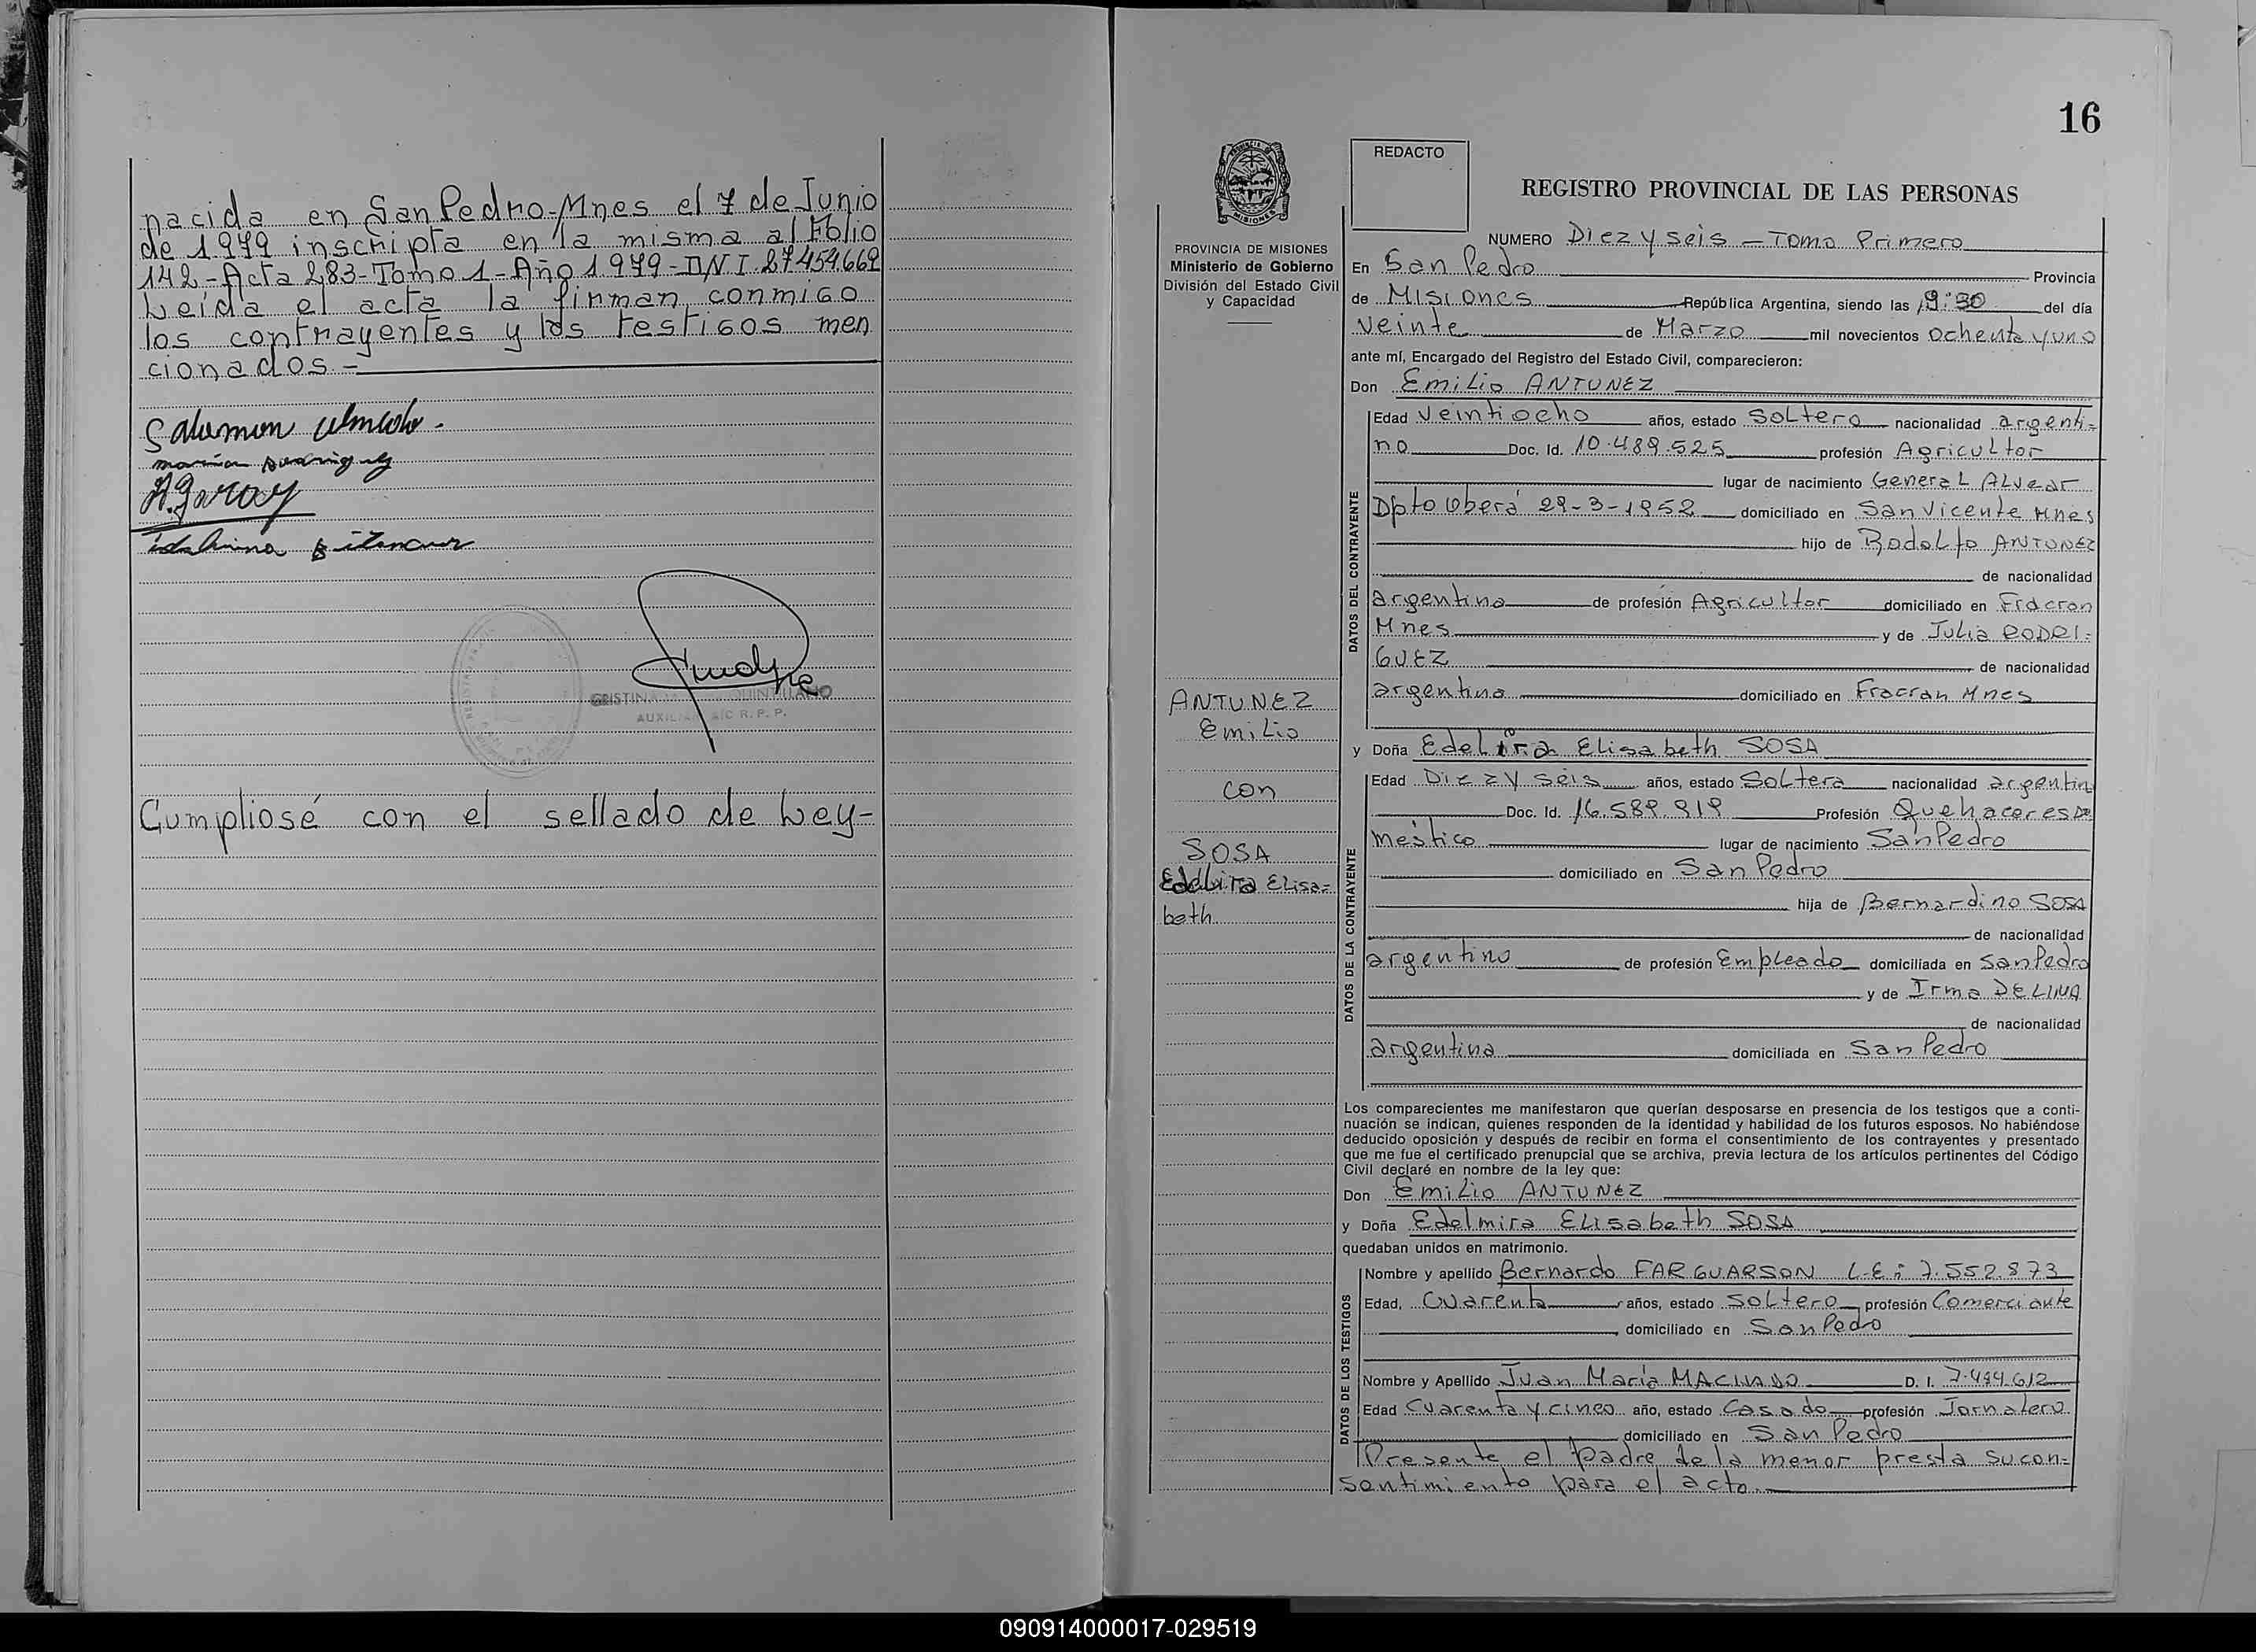 nacida en San Pedro-Mnes el 7 de Junio
de 1.979 inscripta en la misma al Folio
142-Acta 283-Tomo 1-Año 1.979-DNI 27.454.662
Leída el acta la firman conmigo
los contrayentes y los testigos men
cionados.-
H. Garay
CRISTINA QUINTILIANO
R. P. P.
Cumpliosé con el sellado de Ley-
16
REDACTO
REGISTRO PROVINCIAL DE LAS PERSONAS
PROVINCIA DE MISIONES
Ministerio de Gobierno
División del Estado Civil
y Capacidad
ANTUNEZ
Emilio
con
SOSA
Edelmira Elisa=
beth
NUMERO Diez y seis - Tomo Primero
En San Pedro Provincia
de Misiones República Argentina, siendo las 9:30 del día
Veinte de Marzo mil novecientos ochenta y uno
ante mí, Encargado del Registro del Estado Civil, comparecieron:
Don Emilio ANTUNEZ
DATOS DEL CONTRAYENTE
Edad Veintiocho años, estado Soltero nacionalidad argenti=
no Doc. Id. 10.489.525 profesión Agricultor
lugar de nacimiento General Alvear
Dpto Oberá 29-3-1952 domiciliado en San Vicente Mnes
hijo de Rodolfo ANTUNEZ
de nacionalidad
argentina de profesión Agricultor domiciliado en Fracran
Mnes y de Julia RODRI=
GUEZ de nacionalidad
argentina domiciliado en Fracran Mnes
y Doña Edelmira Elisabeth SOSA
DATOS DE LA CONTRAYENTE
Edad Diez y seis años, estado Soltera nacionalidad argentina
Doc. Id. 16.589.919 Profesión Quehaceres Do
méstico lugar de nacimiento San Pedro
domiciliado en San Pedro
hija de Bernardino SOSA
de nacionalidad
argentino de profesión Empleado domiciliada en San Pedro
y de Irma DE LIMA
de nacionalidad
argentina domiciliada en San Pedro
Los comparecientes me manifestaron que querían desposarse en presencia de los testigos que a conti-
nuación se indican, quienes responden de la identidad y habilidad de los futuros esposos. No habiéndose
deducido oposición y después de recibir en forma el consentimiento de los contrayentes y presentado
que me fue el certificado prenupcial que se archiva, previa lectura de los artículos pertinentes del Código
Civil declaré en nombre de la ley que:
Don Emilio ANTUNEZ
y Doña Edelmira Elisabeth SOSA
quedaban unidos en matrimonio.
DATOS DE LOS TESTIGOS
Nombre y apellido Bernardo FARGUARSON L.E: 7.552.873
Edad, Cuarenta años, estado Soltero profesión Comerciante
domiciliado en San Pedro
Nombre y Apellido Juan María MACHADO D. I. 7.494.612
Edad Cuarenta y cinco año, estado Casado profesión Jornalero
domiciliado en San Pedro
Presente el padre de la menor presta su con=
sentimiento para el acto.
090914000017-029519